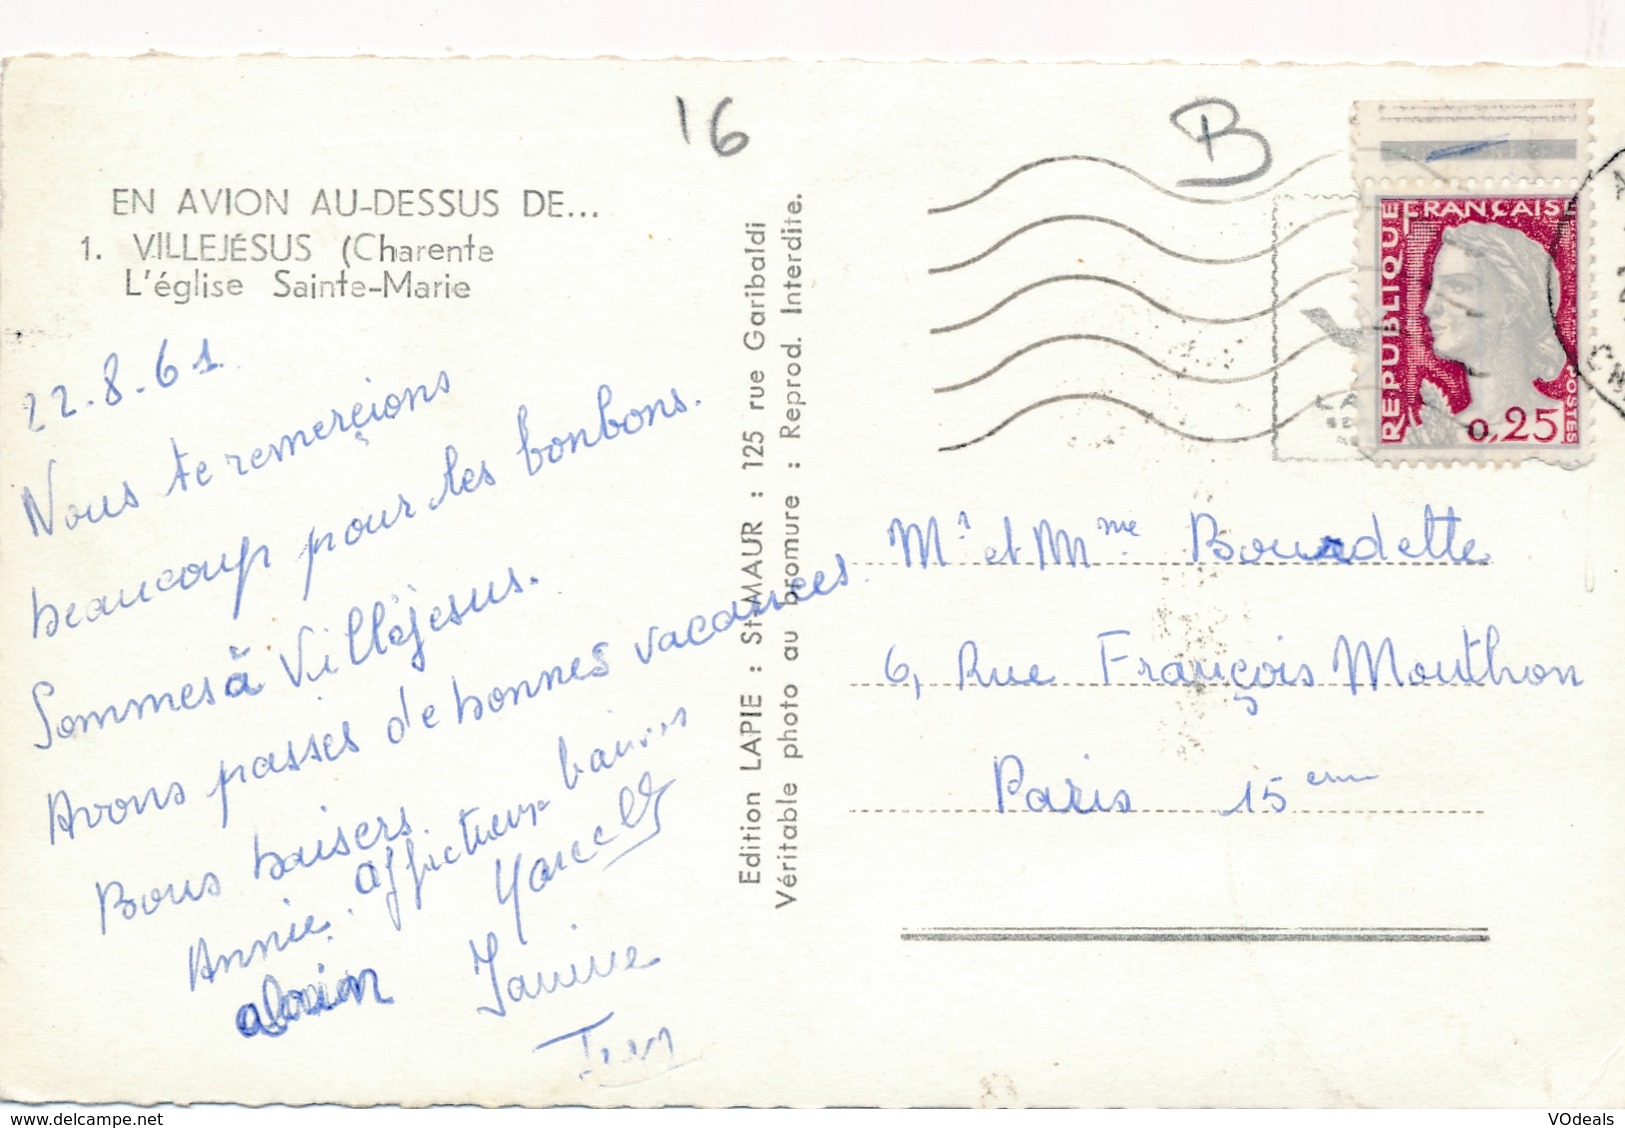 16
B
EN AVION AU-DESSUS DE...
1. VILLEJÉSUS (Charente
L'église Sainte-Marie
22.8.61
Nous te remerçions
beaucoup pour les bonbons.
Sommes à Villéjesus.
Avons passés de bonnes vacances.
Bons baisers.
Annie. affectueux baisers
Marcelle
alain Janine
Edition LAPIE : St-MAUR : 125 rue Garibaldi
Véritable photo au bromure : Reprod. Interdite.
RÉPUBLIQUE FRANÇAISE
POSTES
0,25
Mr et Mme Bourdette
6, Rue Françõis Mouthon
Paris 15 eme
VOdeals